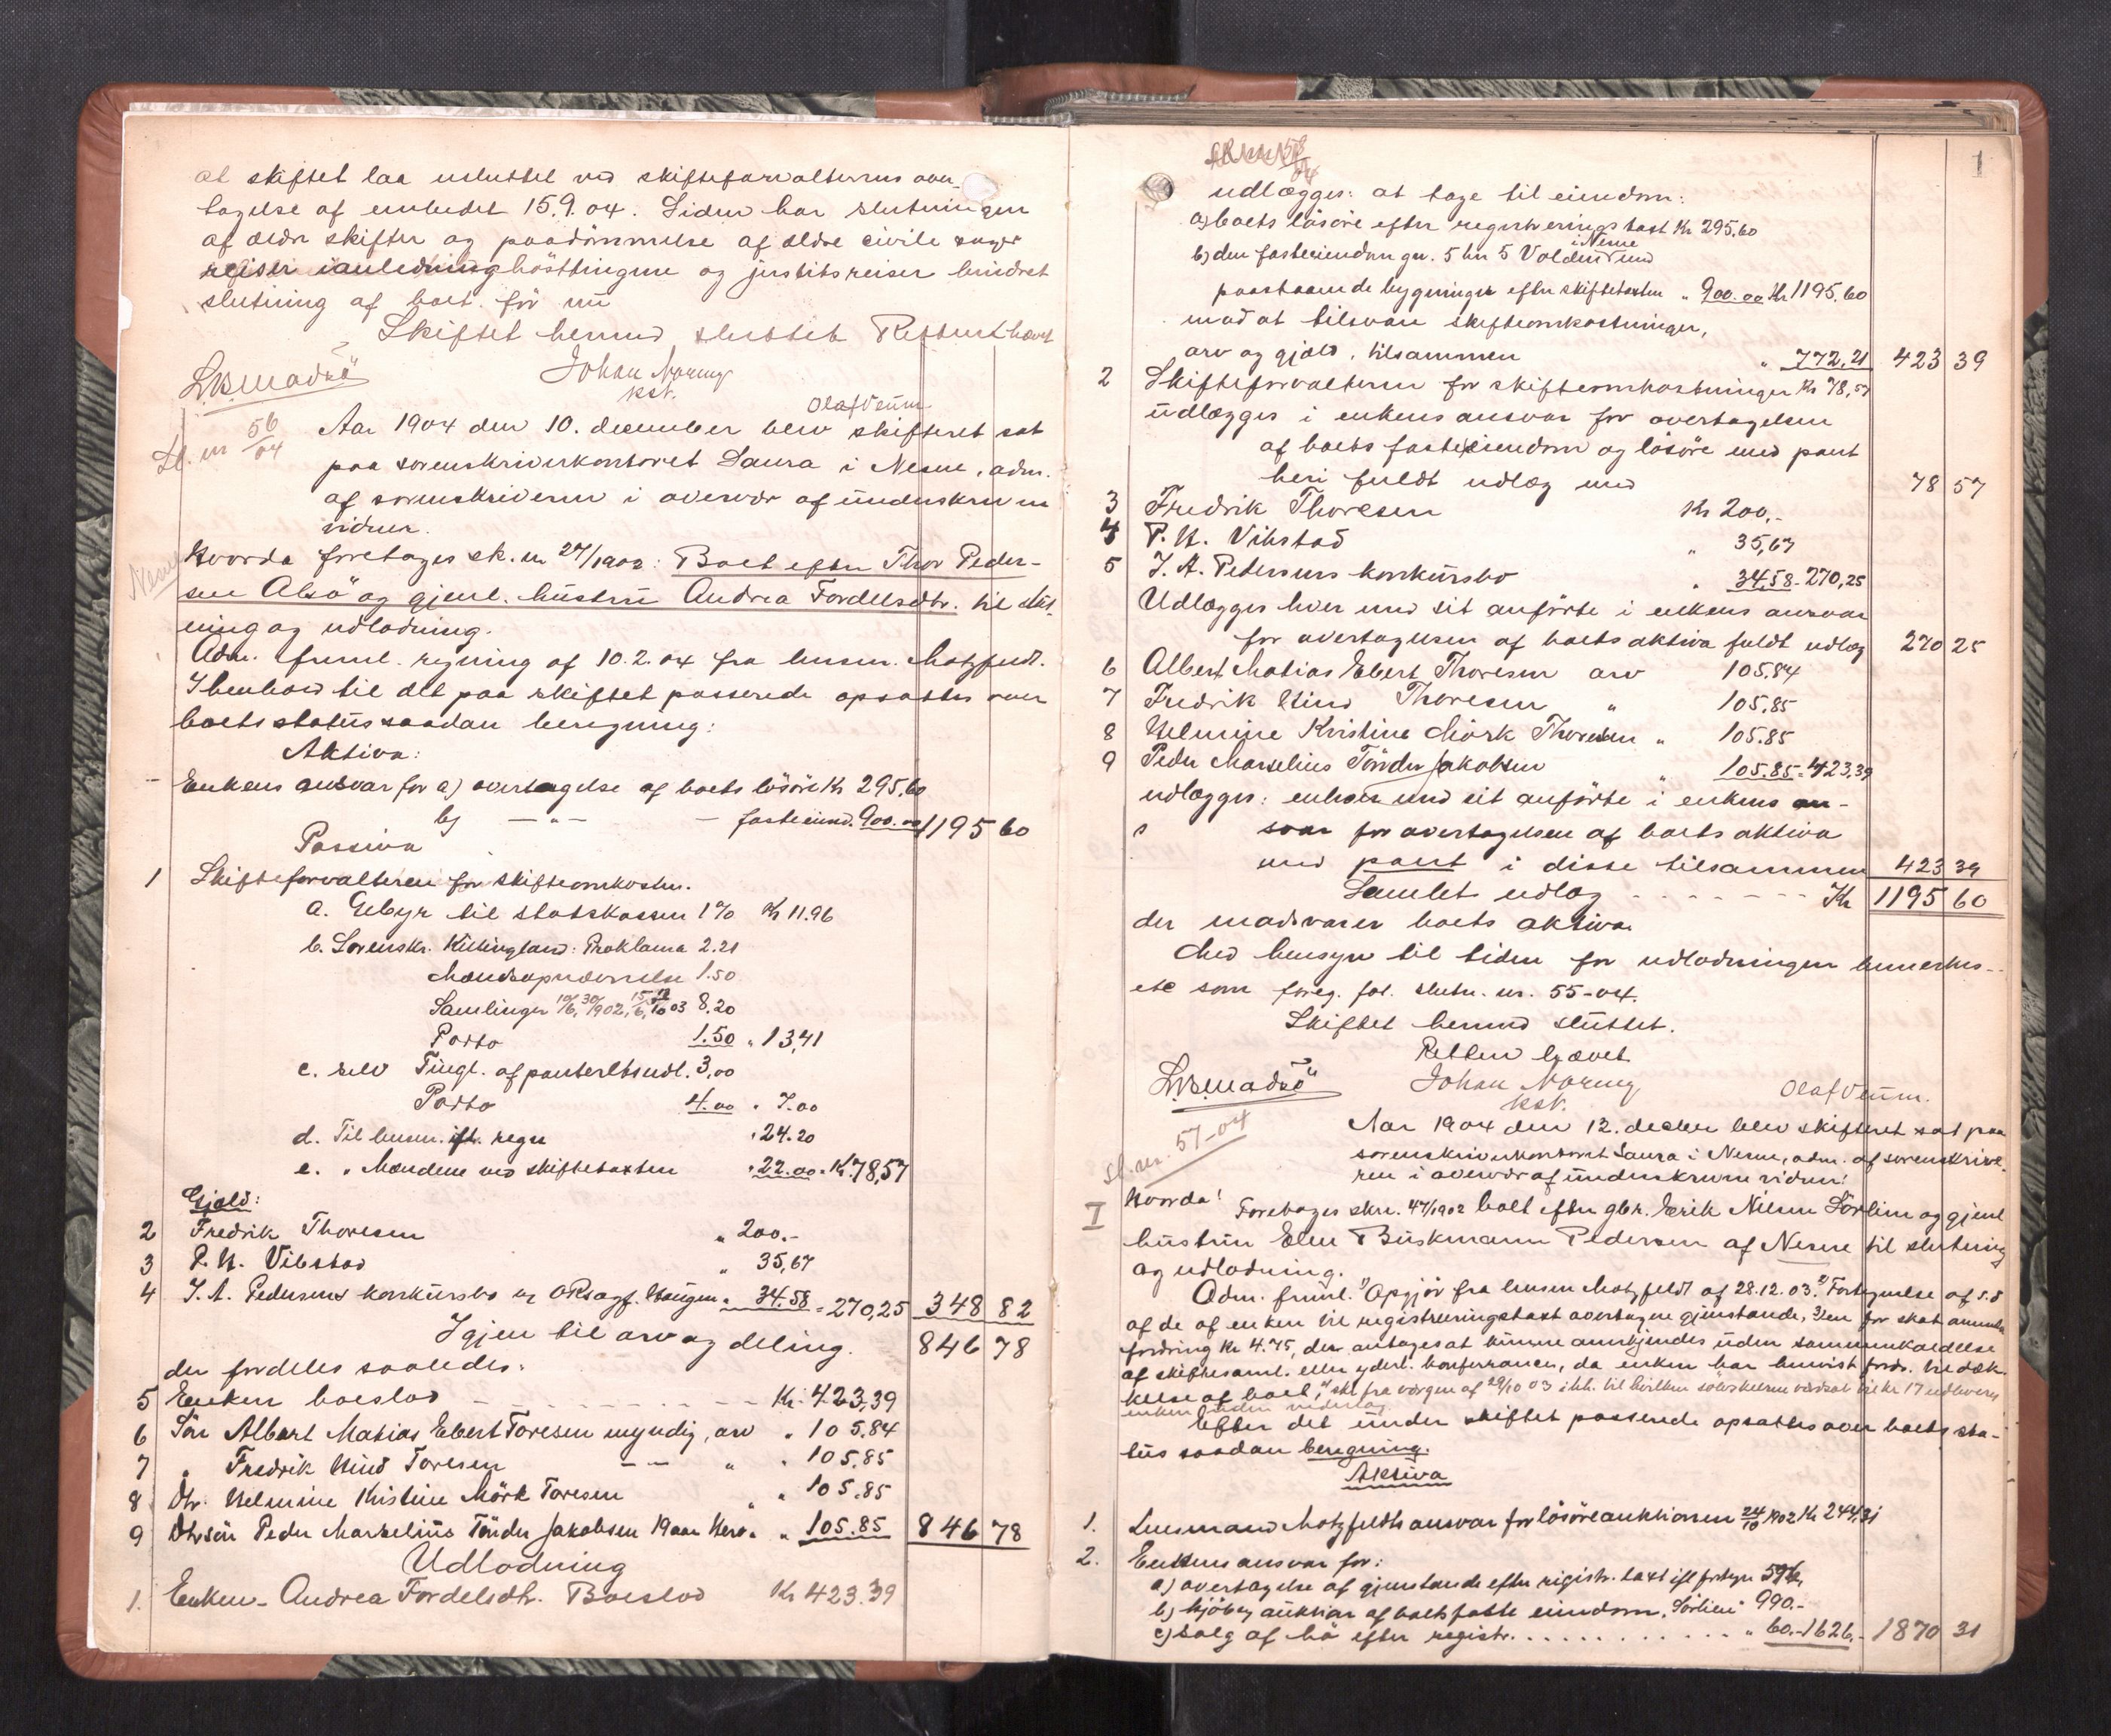 at skiftet laa usluttet ved skifteforvalterens over-
tagelse af embedet 15.9.04. Siden har slutningen
af ældre skifter og paadömmelse af ældre civile sager
reiser i anledning hösttingene og justitsreiser hindret
slutning af boet för nu
Skiftet hermed sluttet Retten hævet
Johan Noring
kst.
Olaf Veum.
Sl. nr 56/04
Aar 1904 den 10. december blev skifteret sat
paa sorenskriverkontoret Saura i Nesne, adm.
af sorenskriveren i overvær af underskrevne
vidner.
Nesne
Hvorda foretages sk. nr 27/1902: Boet efter Thor Peder-
sen Alsö og gjenl. hustru Andrea Fordelsdtr. til slut-
ning og udlodning.
Adm. freml. regning af 10.2.04 fra lensm. Motzfeldt.
I henhold til det paa skiftet passerede opsattes over
boets status saadan beregning:
Aktiva:
Enkens ansvar for a) overtagelse af boets lösöre Kr 295,60
b) — " — — fasteeiend. 900.00 1195 60
Passiva
1 Skifteforvalteren for skifteomkostn.
a. Gebyr til statskassen 1% Kr 11.96
b. Sorenskr. Killingland: Proklama 2.21
Mændsopnævnelse 1.50
Samlinger 10/6, 30/1902, 15/6, 12/10 03 8.20
Porto 1.50 " 13,41
c. selv Tingl. af panteretsudl. 3,00
Porto 4.00 " 7.00
d. Til lensm. ifl. regn " 24.20
e. " Mændene ved skiftetaxten " 22.00 " Kr 78,57
Gjæld:
2 Fredrik Thoresen " 200.-
3 P. H. Vibstad " 35,67
4 J. A. Pedersens konkursbo v. ORsagf. Haugen " 34.58 = 270,25 348 82
Igjen til arv og deling. 846 78
der fordeles saaledes:
5 Enken boeslod - - - - - - - - - Kr. 423,39
6 Sön Albert Matias Ebert Toresen myndig, arv " 105.84
7 " Fredrik Hind Toresen — — " " 105.85
8 Dtr. Helmine Kristine Mörk Toresen " " 105.85
9 Dtrsön Peder Marselius Tönder Jakobsen 19 aar Herö " " 105.85 846 78
Udlodning
1. Enken Andrea Fordelsdtr. Boeslod Kr 423.39
1
udlægges: at tage til eiendom:
a) boets lösöre efter registreringstaxt Kr 295.60
b) den fasteeiendom gn. 5 bn 5 Volden i Nesne med
paastaaende bygninger efter skiftetaxten " 900.00 Kr 1195,60
mod at tilsvare skifteomkostninger,
arv og gjæld, tilsammen " 772.21 423 39
2 Skifteforvalteren for skifteomkostninger Kr 78,57
udlægges i enkens ansvar for overtagelsen
af boets fasteeiendom og lösöre med pant
heri fuldt udlæg med 78 57
3 Fredrik Thoresen Kr 200,-
4 P. H. Vikstad " 35,67
5 J. A. Pedersens konkursbo " 34.58 - 270,25
Udlægges hver med sit anförte i enkens ansvar
for overtagelsen af boets aktiva fuldt udlæg 270 25
6 Albert Matias Ebert Thoresen arv 105.84
7 Fredrik Hind Thoresen " 105.85
8 Helmine Kristine Mörk Thoresen " 105.85
9 Peder Marselius Tönder Jakobsen " 105.85 = 423,39
udlægges: enhver med sit anförte i enkens an-
svar for overtagelsen af boets aktiva
med pant i disse tilsammen 423 39
Samlet udlæg - - - - - - - Kr 1195 60
der modsvarer boets aktiva.
Med hensyn til tiden for udlodningen bemerkes
etc som foreg. fol. slutn. nr. 55-04.
Skiftet hermed sluttet.
Retten hævet
Johan Noring
kst.
Olaf Veum.
Sl. nr. 57-04
Aar 1904 den 12. decbr blev skifteret sat paa
sorenskriverkontoret Saura i Nesne, adm. af sorenskrive-
ren i overvær af underskrevne vidner:
I Hvorda! Foretages skn. 47/1902 boet efter gbr. Erik Nilsen Sörlien og gjenl
hustru Elen Buskmann Pedersen af Nesne til slutning
og udlodning.
Adm. freml. 1) Opgjör fra lensm Motzfeldt af 28.12.03. 2) Fortegnelse af s.d
af de af enken til registreringstaxt overtagne gjenstande, 3) en for skat anmeldt
fordring Kr 4.75, der antages at kunne anerkjendes uden sammenkaldelse
af skiftesaml. eller yderl. konferrancer, da enken har henvist fordr. til dæk-
kelse af boet, 4) skr fra værgen af 29/10 03 ihh. til hvilken sölvskeerne værdsat til kr 17 udleveres
enken uden vederlag.
Efter det under skiftet passerede opsattes over boets sta-
tus saadan beregning.
Aktiva
1. Lensmand Motzfeldts ansvar for lösöreauktionen 24/10 1902 Kr 244,31
2. Enkens ansvar for:
a) overtagelse af gjenstande efter registr. taxt ifl fortegn 576,
b) kjöb v. auktion af boets faste eiendom, Sörlien 990.-
c) Salg af hö efter registr. . . . . . . . . . . . " 60.- 1626.- 1870 31